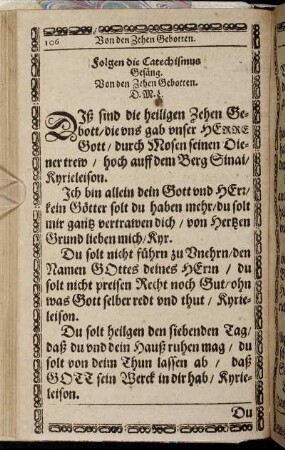 106
Von den Zehen Gebotten.
Folgen die Catechismus
Gesäng.
Von den Zehen Gebotten.
D. M. L.
Diß sind die heiligen Zehen Ge-
bott / die vns gab vnser HERRE
Gott / durch Mosen seinen Die-
ner trew / hoch auff dem Berg Sinai /
Kyrieleison.
Ich bin allein dein Gott vnd HErr /
kein Götter solt du haben mehr / du solt
mir gantz vertrawen dich / von Hertzen
Grund lieben mich / Kyr.
Du solt nicht führn zu Vnehrn / den
Namen GOttes deines HErrn / du
solt nicht preisen Recht noch Gut / ohn
was Gott selber redt vnd thut / Kyrie-
leison.
Du solt heilgen den siebenden Tag /
daß du vnd dein Hauß ruhen mag / du
solt von deim Thun lassen ab / daß
GOTT sein Werck in dir hab / Kyrie-
leison.
Du